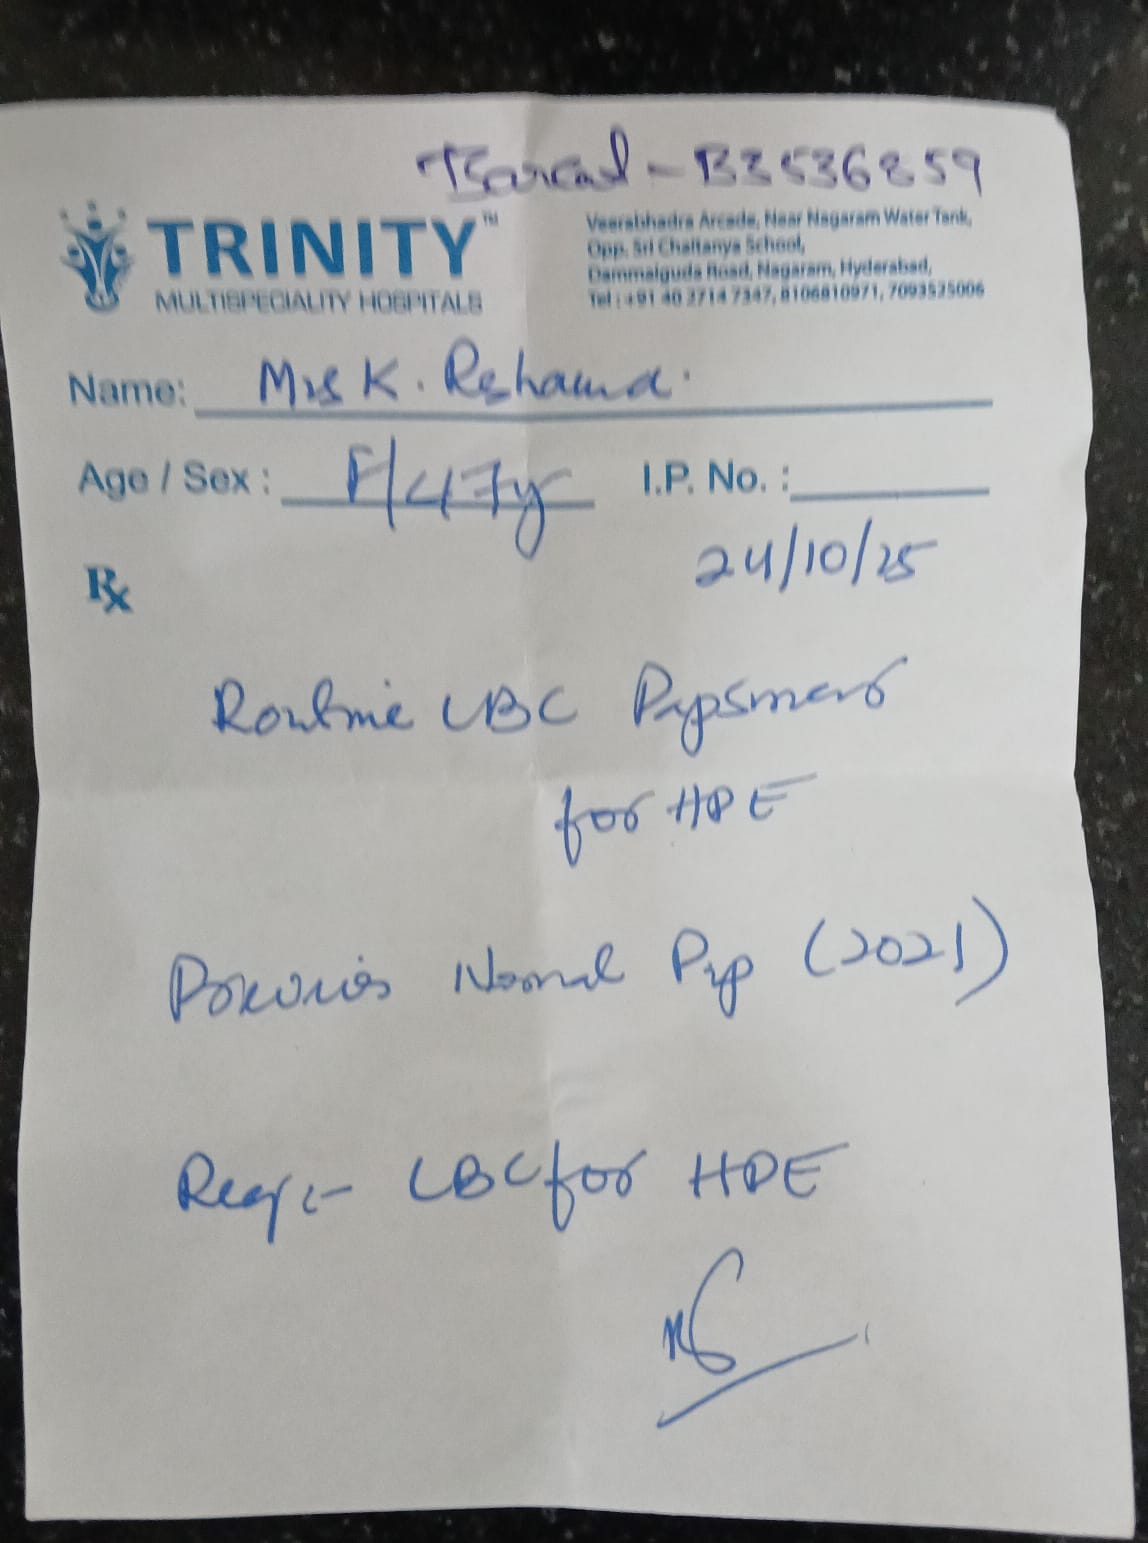 Barcad - B3536859
TRINITY™
MULTISPECIALITY HOSPITALS
Veerabhadra Arcade, Near Nagaram Water Tank,
Opp. Sri Chaitanya School,
Dammaiguda Road, Nagaram, Hyderabad,
Tel : +91 40 2714 7347, 8106810971, 7093525006
Name: Mrs K.
Age / Sex : F/47y I.P. No. :
24/10/25
Rx
Routine LBC Papsmear
for HPE
Previous Normal Pap (2021)
LBC for HPE